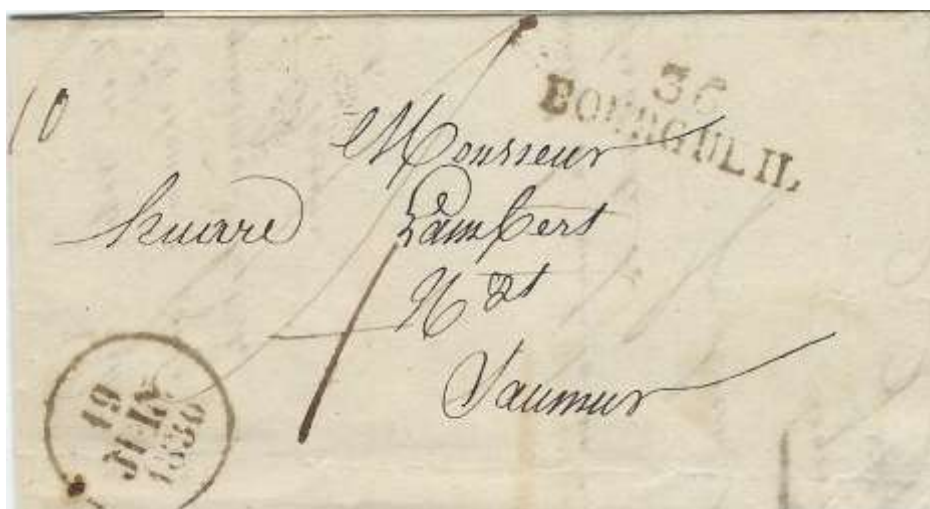 10
36
BOURGUEIL
Monsieur
Lambert
Nét
Saumur
19
JUIN
1830